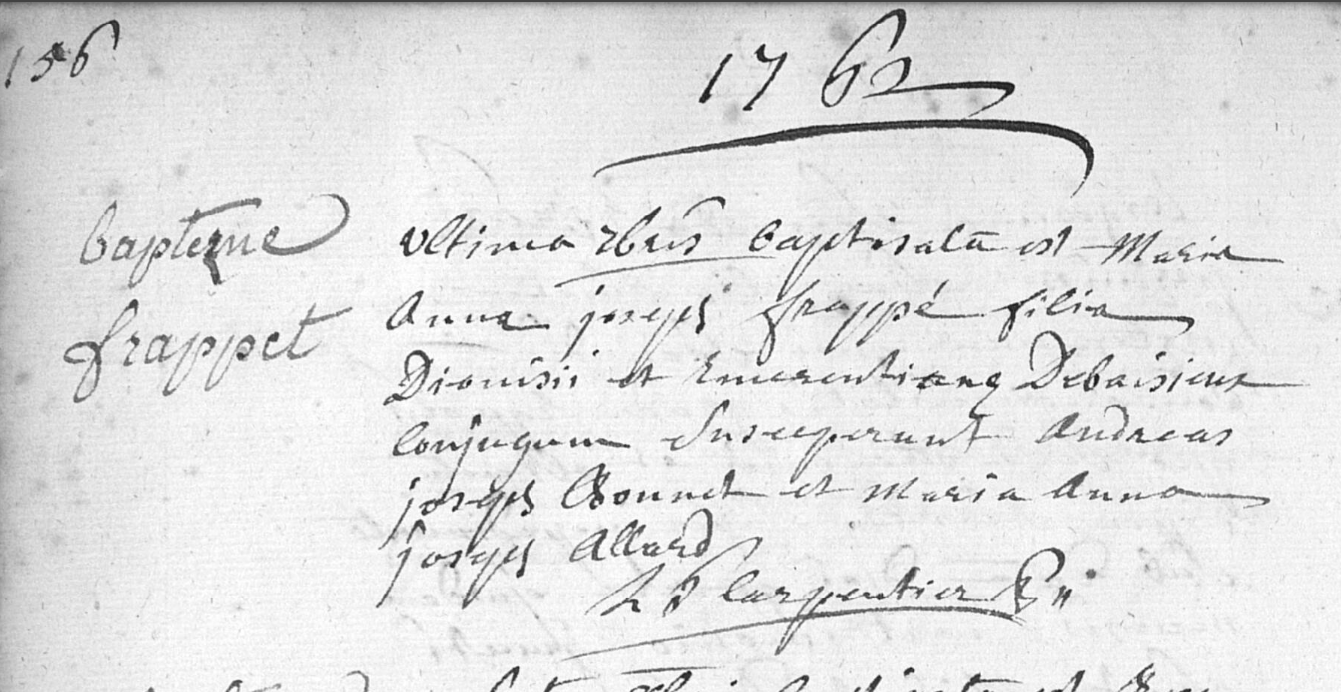 156
1762
bapteme
frappet
ultima xbris baptisatã est Maria
Anna joseph frappé filia
Dionisii et Emerentianę Debaisieux
Conjugum Susceperunt Andreas
joseph Bonnet et Maria Anna
joseph Allard
Carpentier